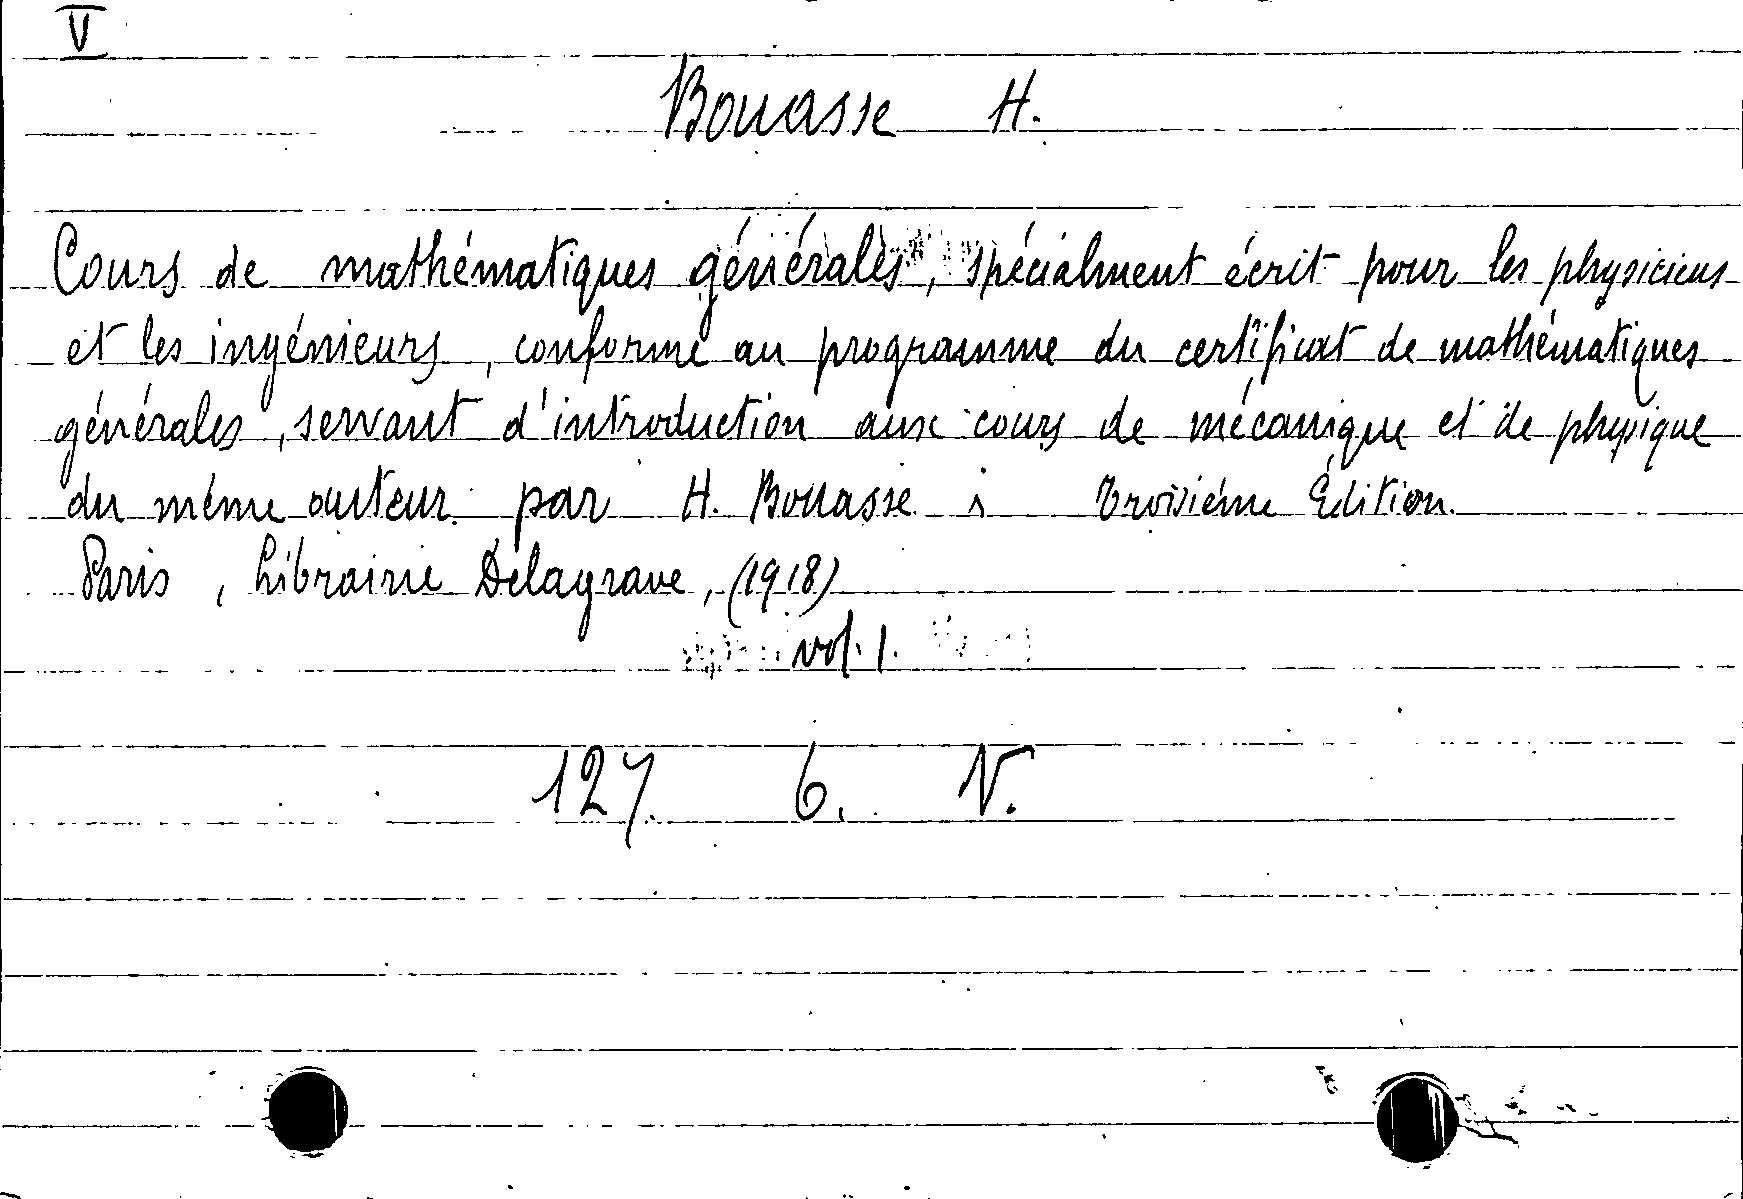 V
Bouasse H.
Cours de mathématiques générales, spécialment écrit pour les physiciens
et les ingénieurs, conforme au programme du certificat de mathématiques
générales, servant d'introduction aux cours de mécanique et de physique
du même auteur. par H. Bouasse Troisième Édition.
Paris, Librairie Delagrave, (1918)
vol. 1.
127. 6. V.